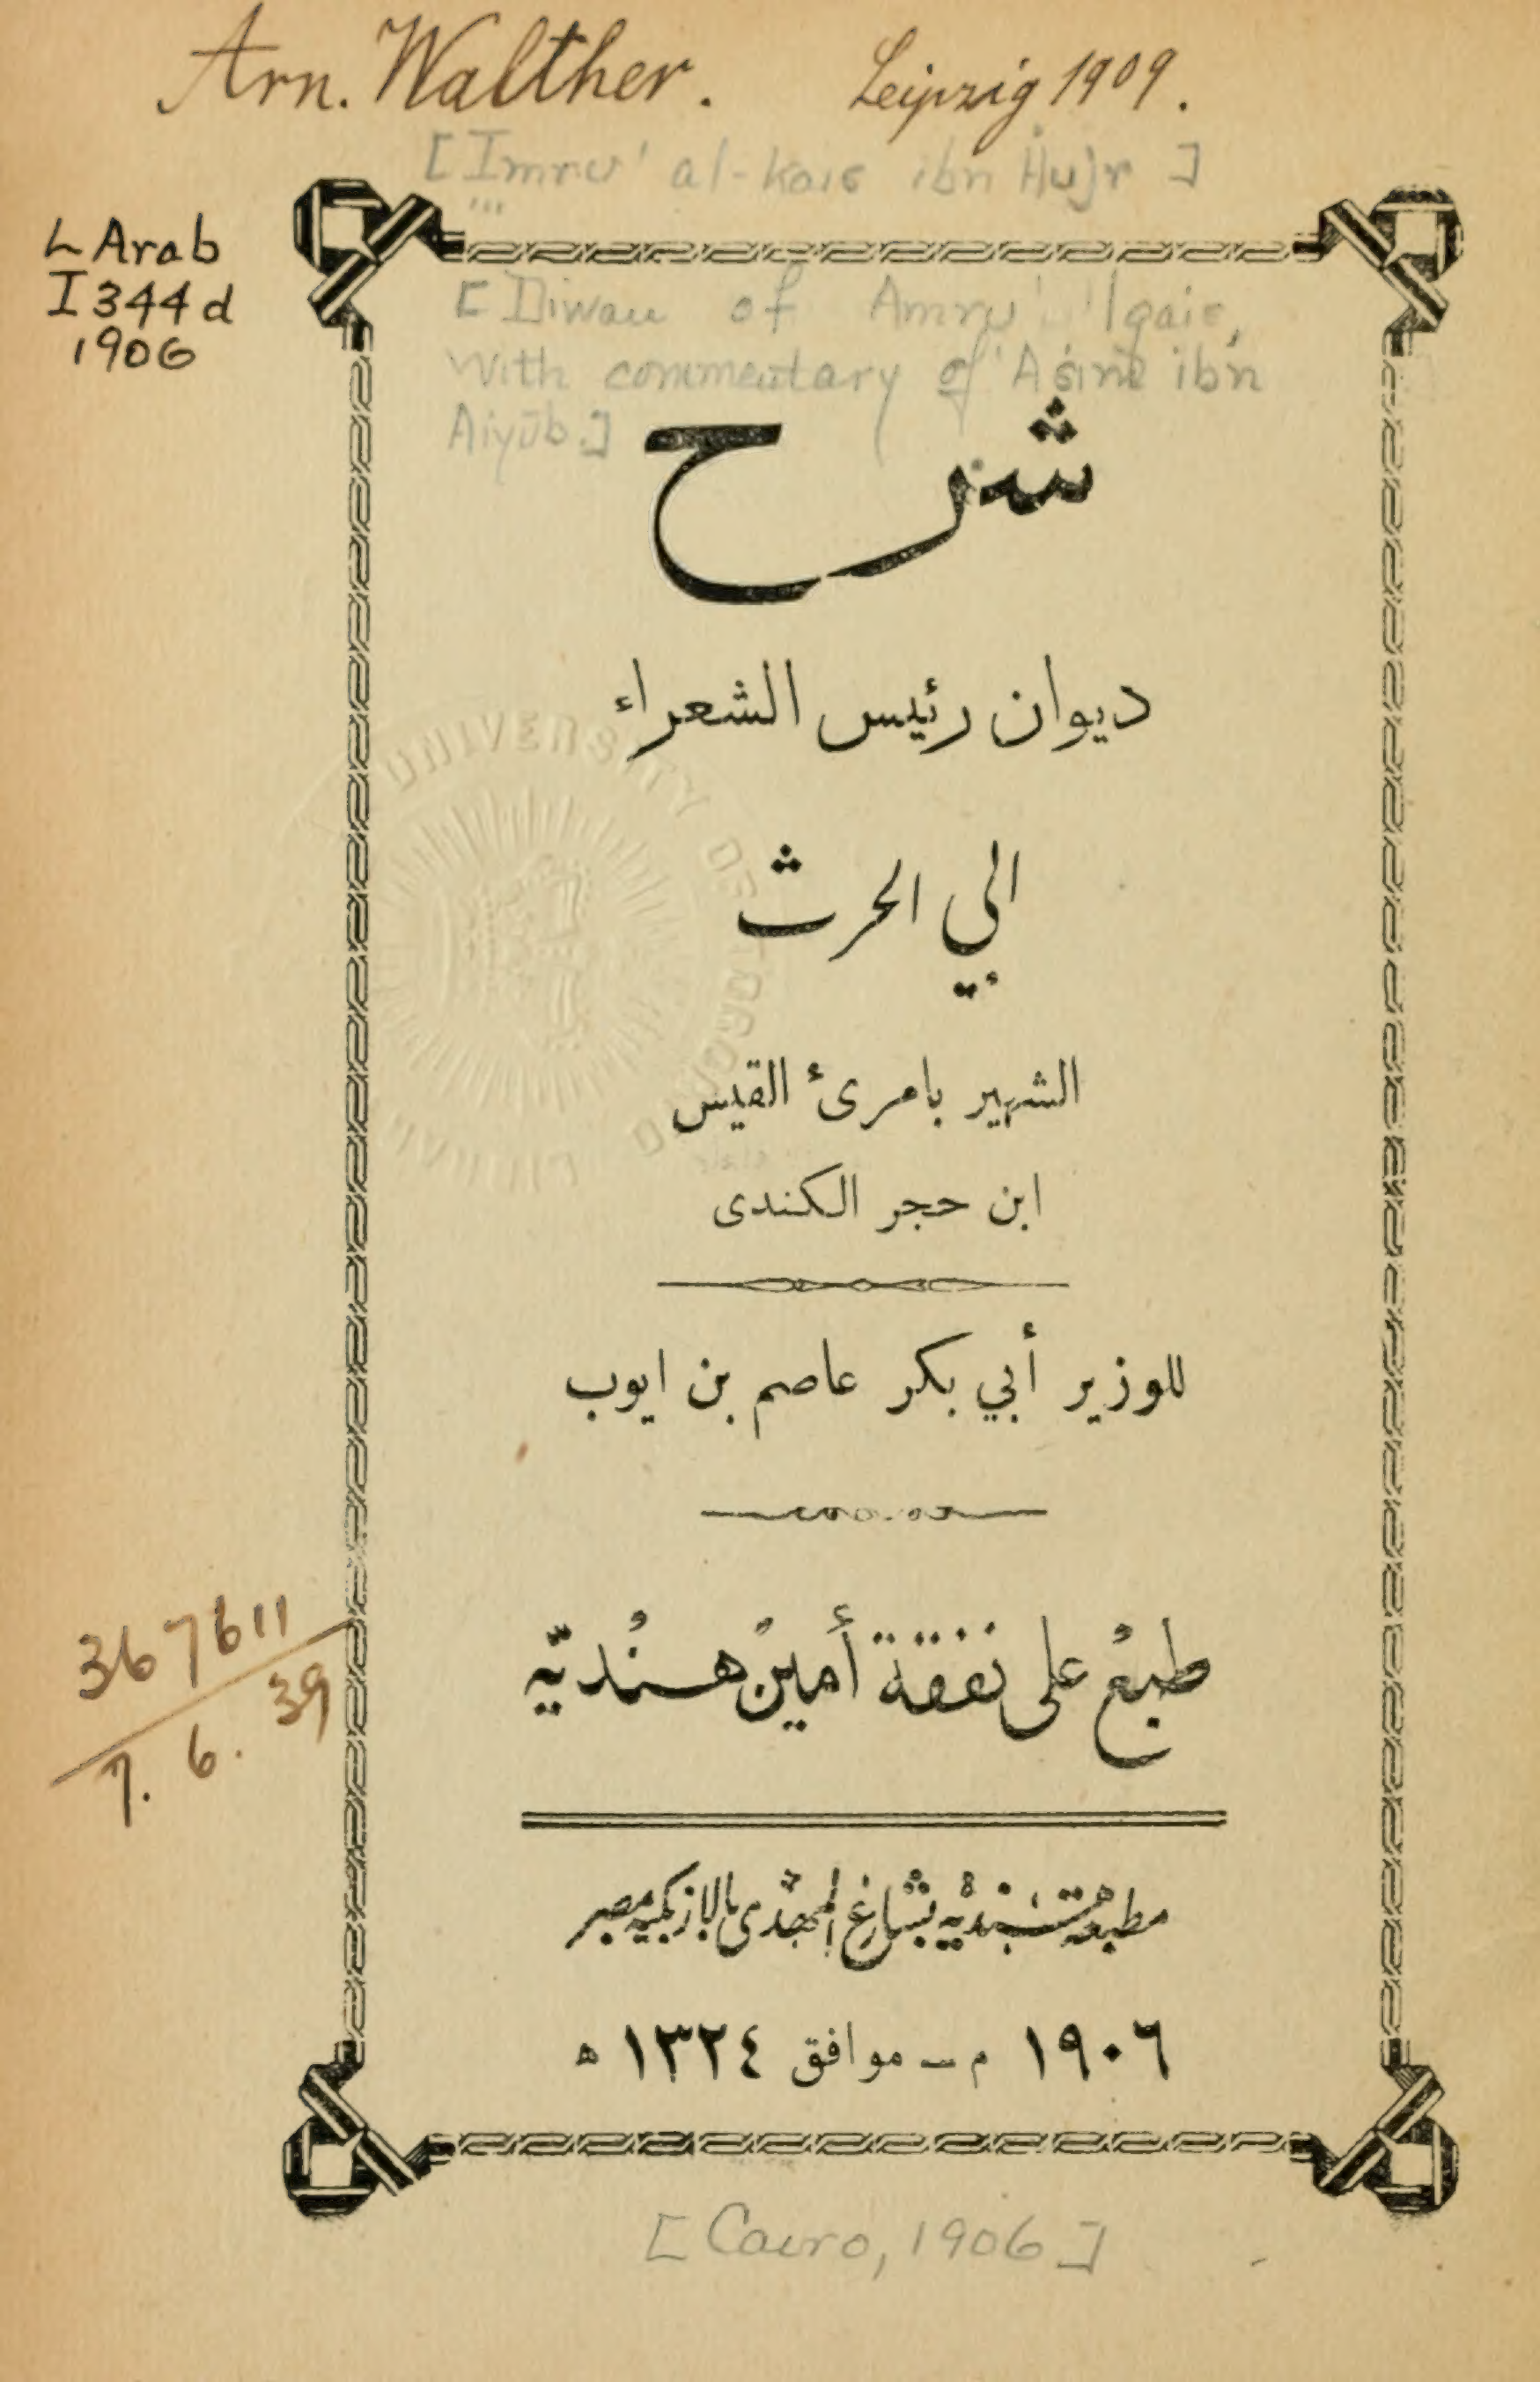 Arn. Walther. Leipzig 1909.
[Imru' al-kais ibn Hujr]
L Arab
I344d
1906
[Diwan of Amru' lqais,
with commentary of 'Asim ibn
Aiyūb.]
شرح
ديوان رئيس الشعراء
ابي الحرث
الشهير بامرئ القيس
ابن حجر الكندى
للوزير أبي بكر عاصم بن ايوب
طبع على نفقة أمين هنديّه
367611
7. 6. 39
مطبعة هنديه بشارع المهدى بالازبكيه بمصر
١٩٠٦ م — موافق ١٣٢٤ ه
[Cairo, 1906]